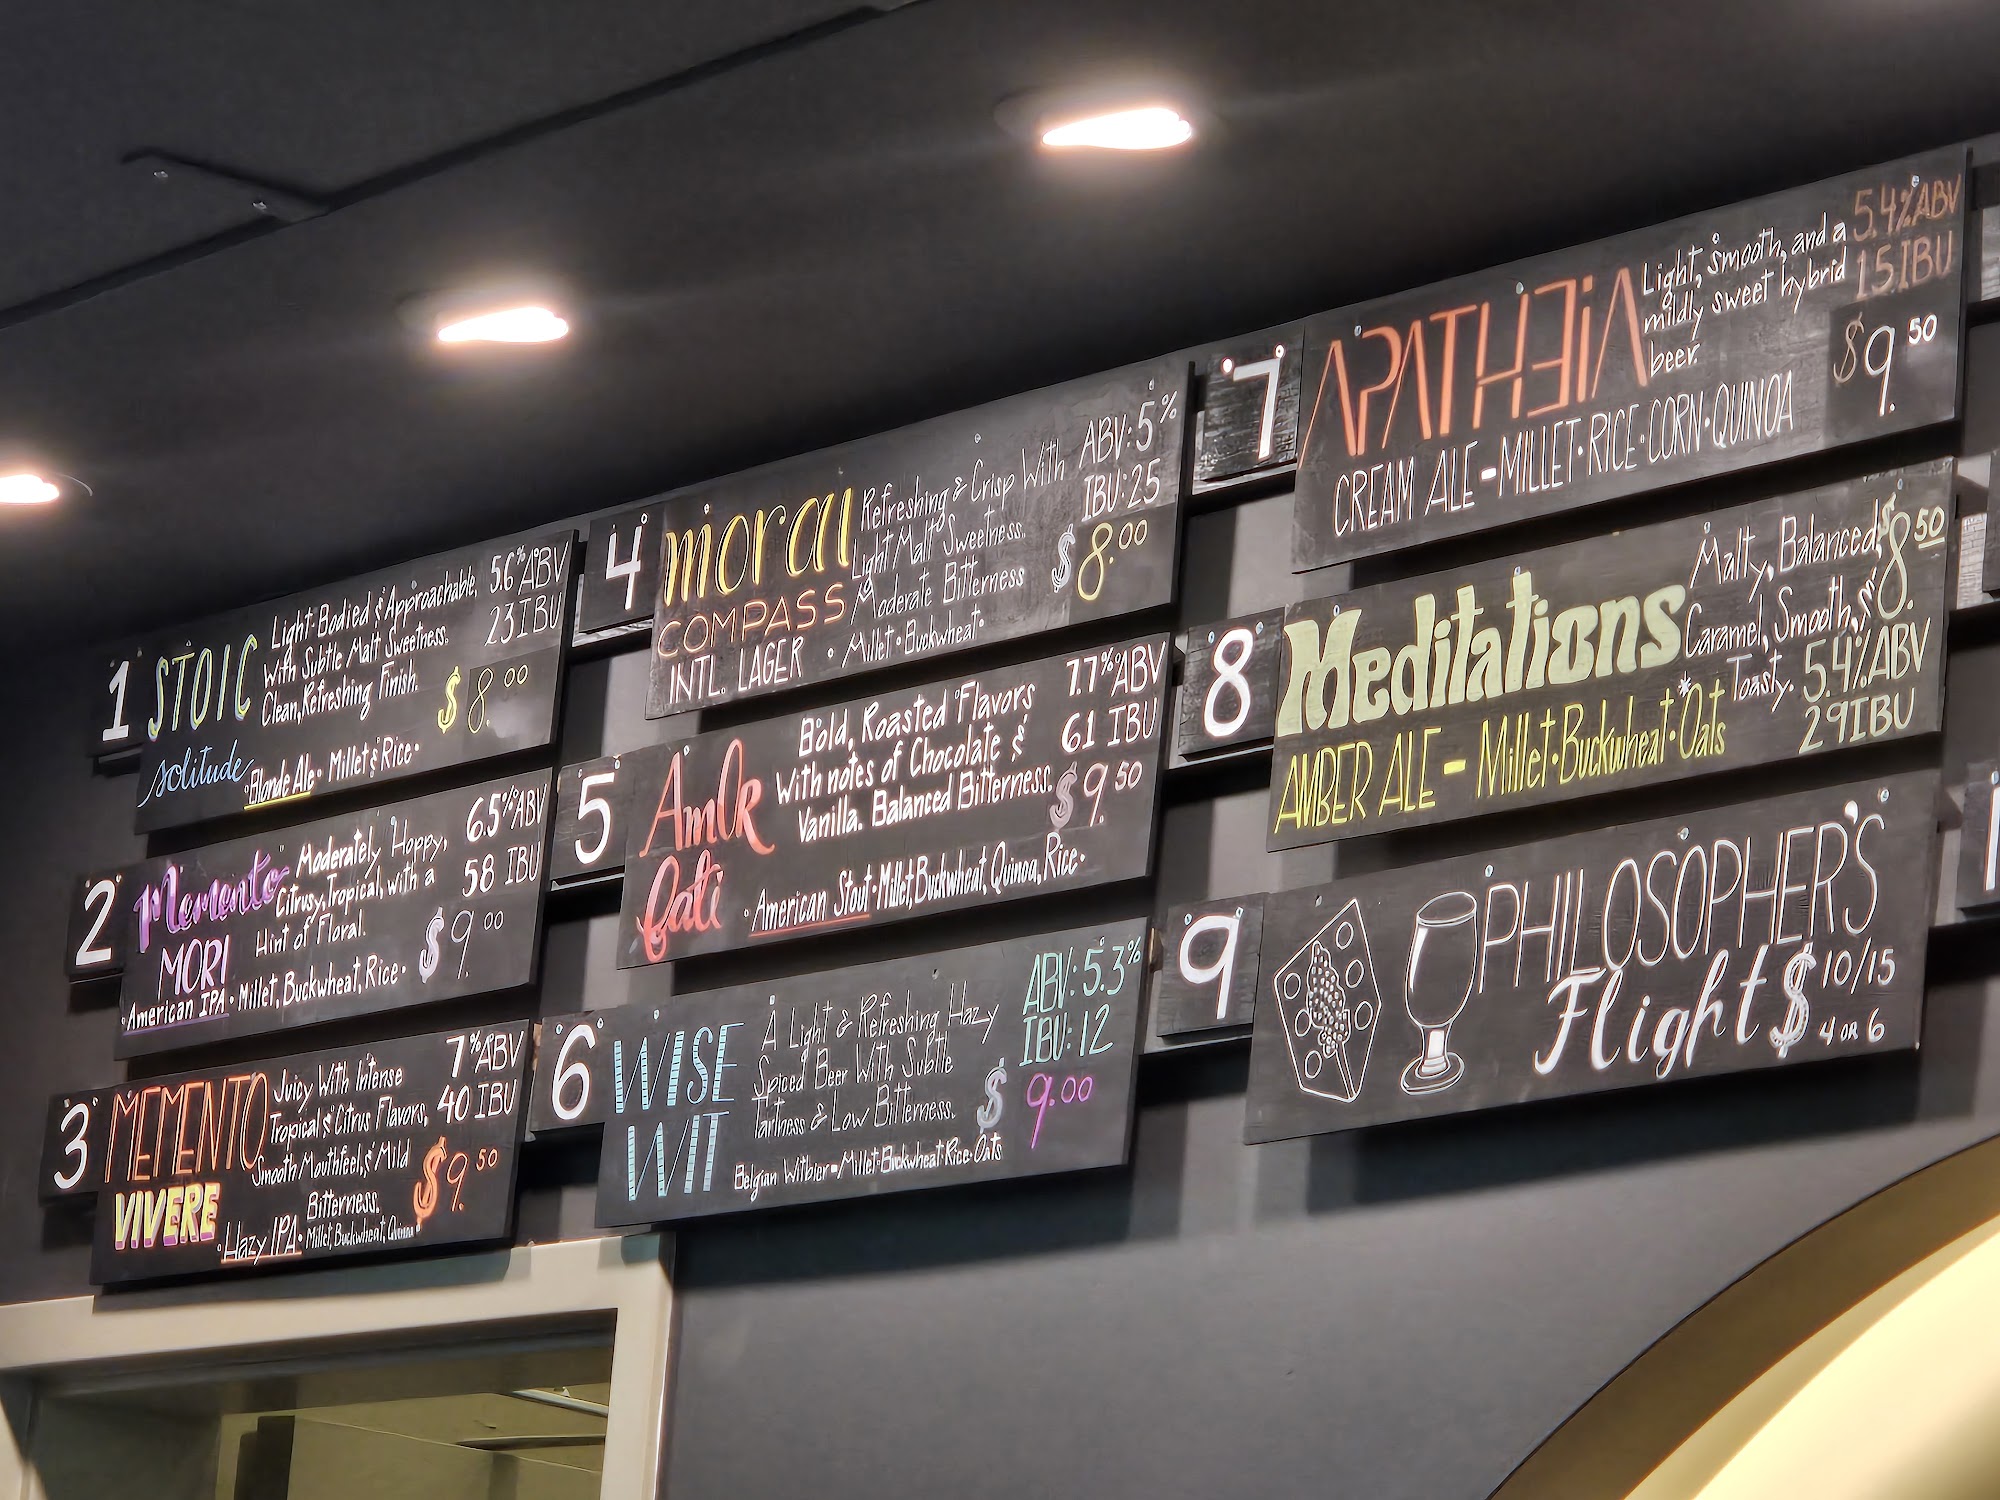 1
STOIC
solitude
Light-Bodied & Approachable,
With Subtle Malt Sweetness.
Clean, Refreshing Finish.
5.6% ABV
23 IBU
$8.00
Blonde Ale • Millet & Rice •
2
Memento
MORI
Moderately Hoppy,
Citrusy, Tropical, with a
Hint of Floral.
6.5% ABV
58 IBU
$9.00
• American IPA • Millet, Buckwheat, Rice •
3
MEMENTO
VIVERE
Juicy With Intense
Tropical & Citrus Flavors,
Smooth Mouthfeel, & Mild
Bitterness.
7% ABV
40 IBU
$9.50
• Hazy IPA • Millet, Buckwheat, Quinoa
4
moral
COMPASS
INTL. LAGER
Refreshing & Crisp With
Light Malt Sweetness.
Moderate Bitterness
• Millet • Buckwheat •
ABV: 5%
IBU: 25
$8.00
5
Amor
Fati
Bold, Roasted Flavors
With notes of Chocolate &
Vanilla. Balanced Bitterness.
7.7% ABV
61 IBU
$9.50
• American Stout • Millet, Buckwheat, Quinoa, Rice •
6
WISE
WIT
A Light & Refreshing Hazy
Spiced Beer With Subtle
Tartness & Low Bitterness.
ABV: 5.3%
IBU: 12
$9.00
Belgian Witbier • Millet • Buckwheat • Rice • Oats
7
APATHEiA
Light, smooth, and a
mildly sweet hybrid
beer.
5.4% ABV
15 IBU
$9.50
CREAM ALE - MILLET • RICE • CORN • QUINOA
8
Meditations
Malty, Balanced,
Caramel, Smooth, &
Toasty.
$8.50
5.4% ABV
29 IBU
AMBER ALE - Millet • Buckwheat • *Oats
9
PHILOSOPHER'S
Flight $10/15
4 OR 6